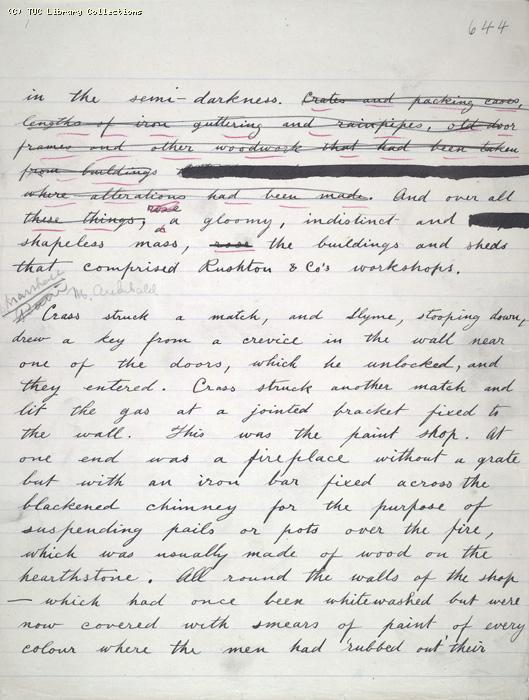 (C) TUC Library Collections
644
in the semi-darkness. Crates and packing cases,
lengths of iron guttering and rainpipes, old door
frames and other woodwork that had been taken
from buildings
where alterations had been made. And over all
these things, rose a gloomy, indistinct and
shapeless mass, rose the buildings and sheds
that comprised Rushton & Co's workshops.
Crass struck a match, and Slyme, stooping down,
drew a key from a crevice in the wall near
one of the doors, which he unlocked, and
they entered. Crass struck another match and
lit the gas at a jointed bracket fixed to
the wall. This was the paint shop. At
one end was a fireplace without a grate
but with an iron bar fixed across the
blackened chimney for the purpose of
suspending pails or pots over the fire,
which was usually made of wood on the
hearthstone. All round the walls of the shop
— which had once been whitewashed but were
now covered with smears of paint of every
colour where the men had 'rubbed out' their